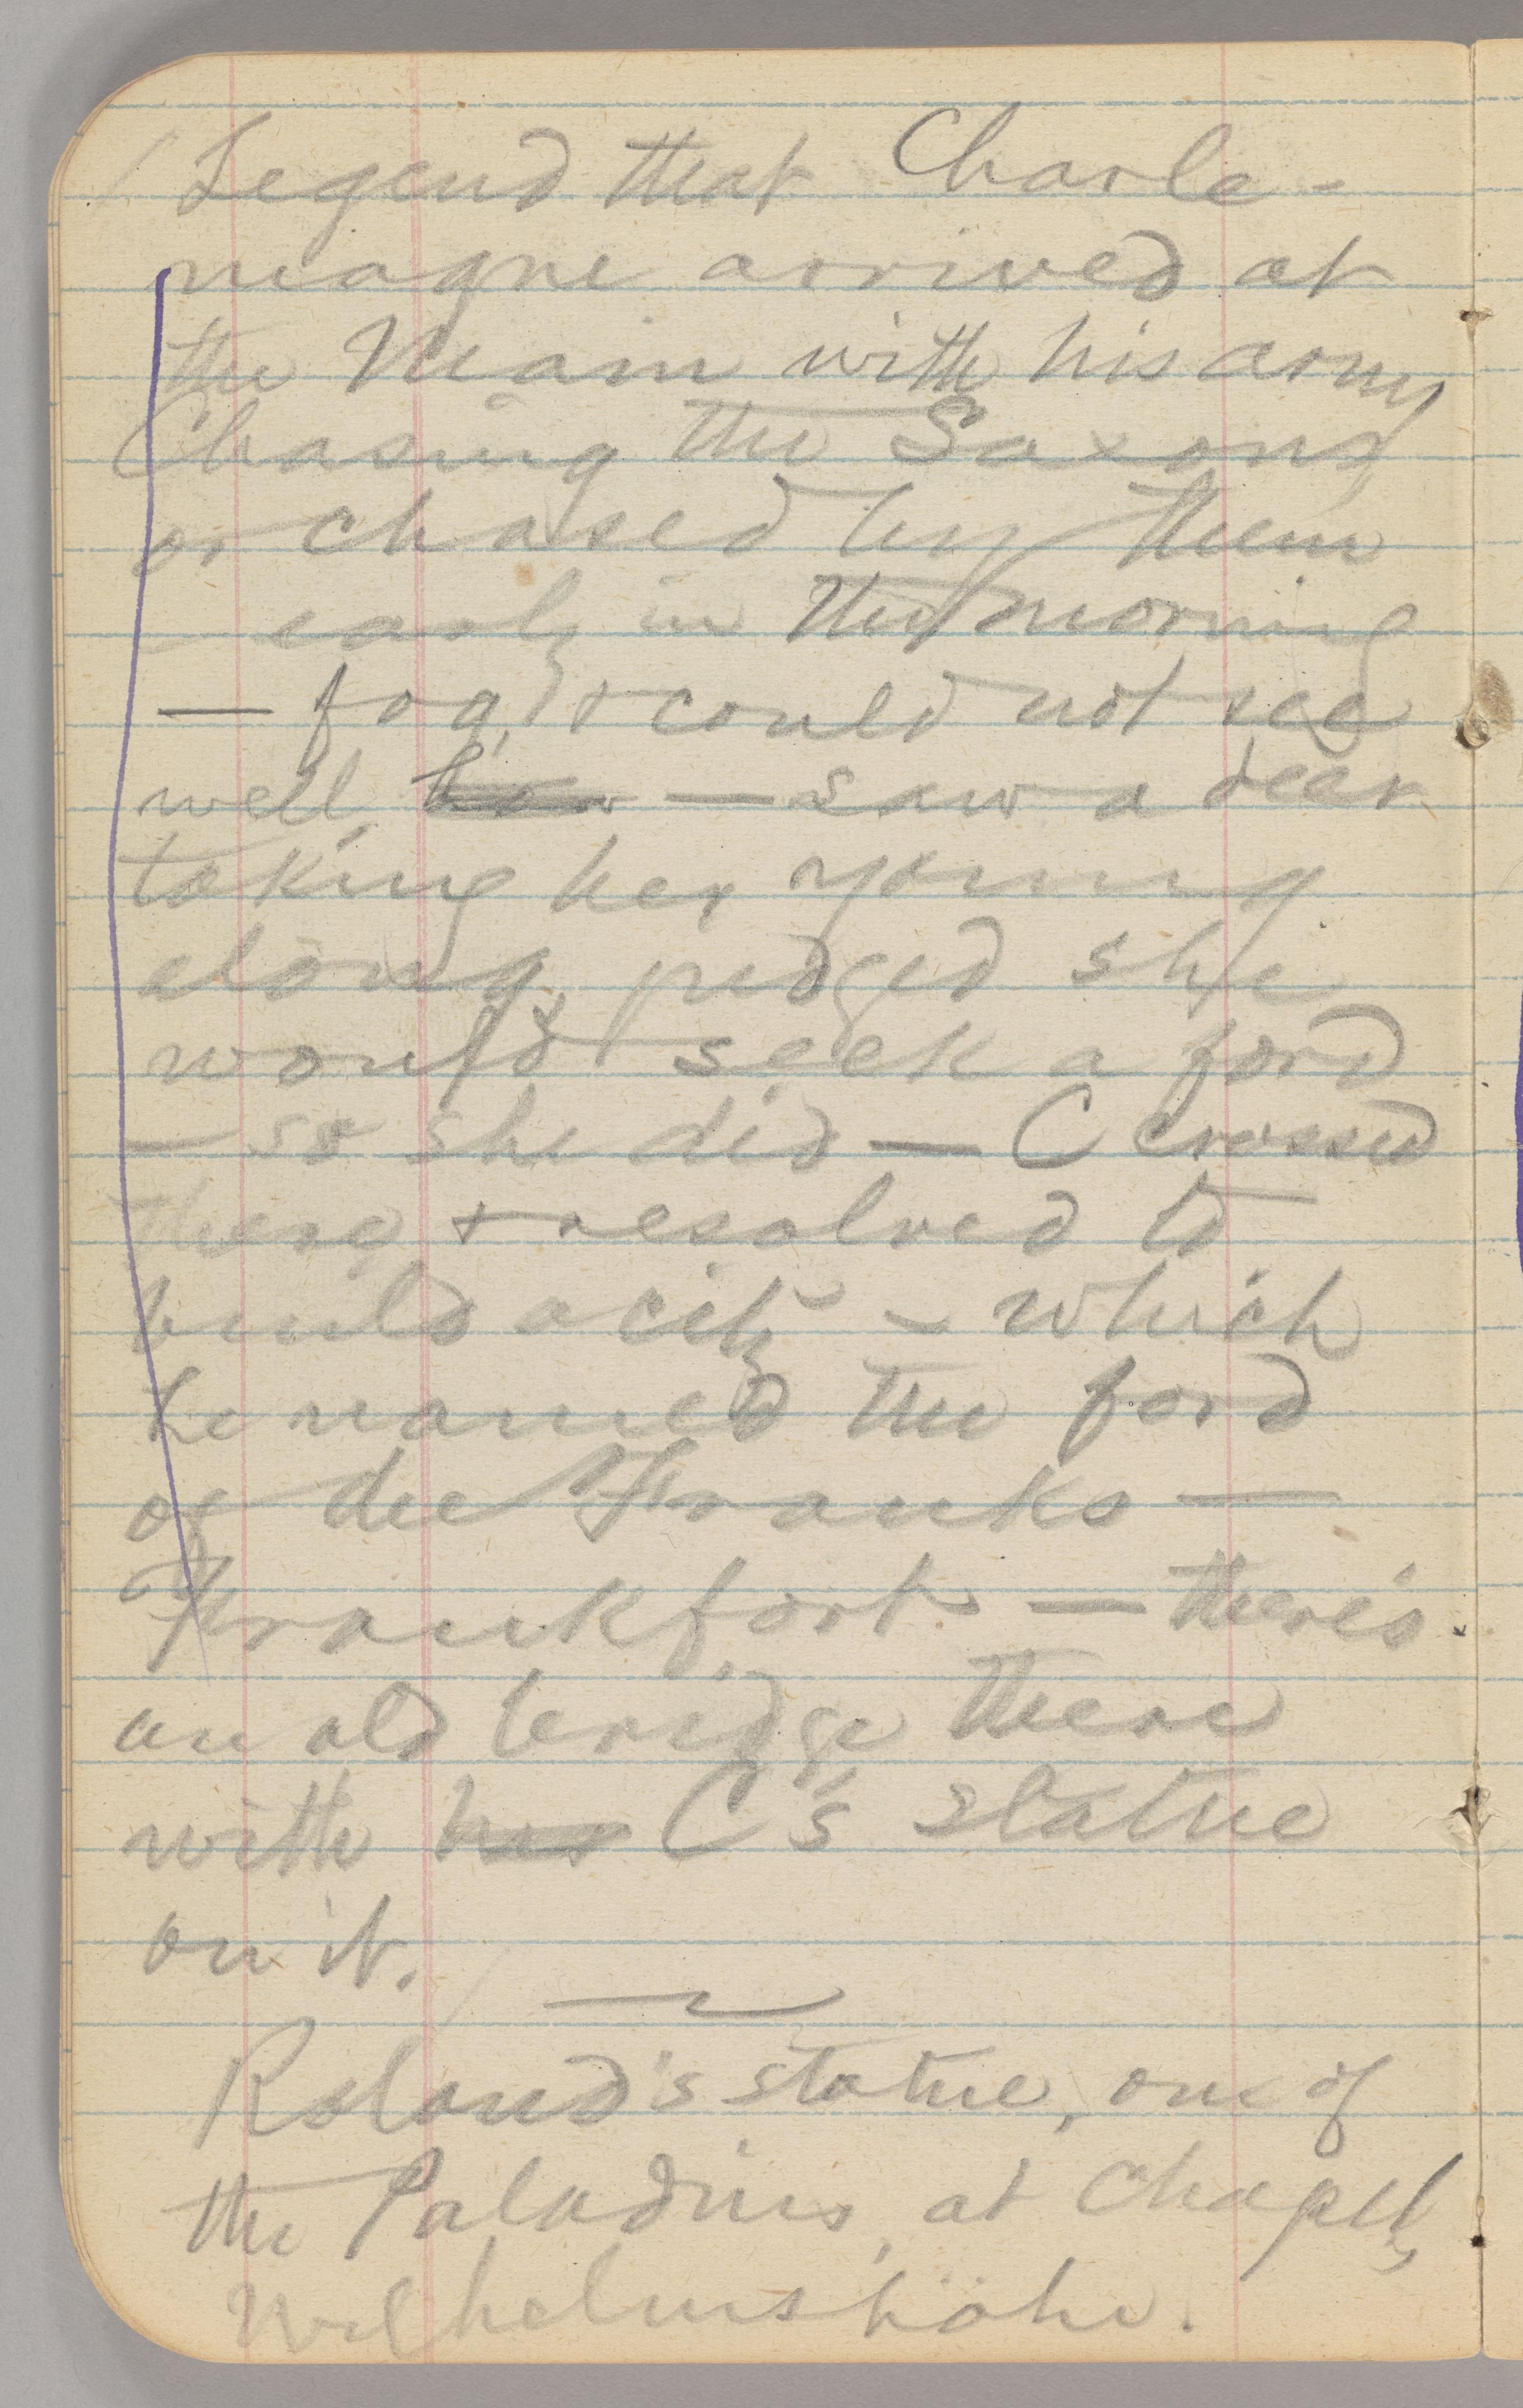 Legend that Charle-
magne arrived at
the Main with his army
Chasing the Saxons,
or chased by them
— early in the morning
— fog, & could not see
well, how — saw a dear
taking her young
along, judged she
would seek a ford
— so she did — C crossed
there & resolved to
build a city — which
he named the ford
of the Franks —
Frankfort — there's
an old bridge there
with his C's statue
on it.
Roland's statue, one of
the Paladins, at Chapel,
Wilhelmshöhe.